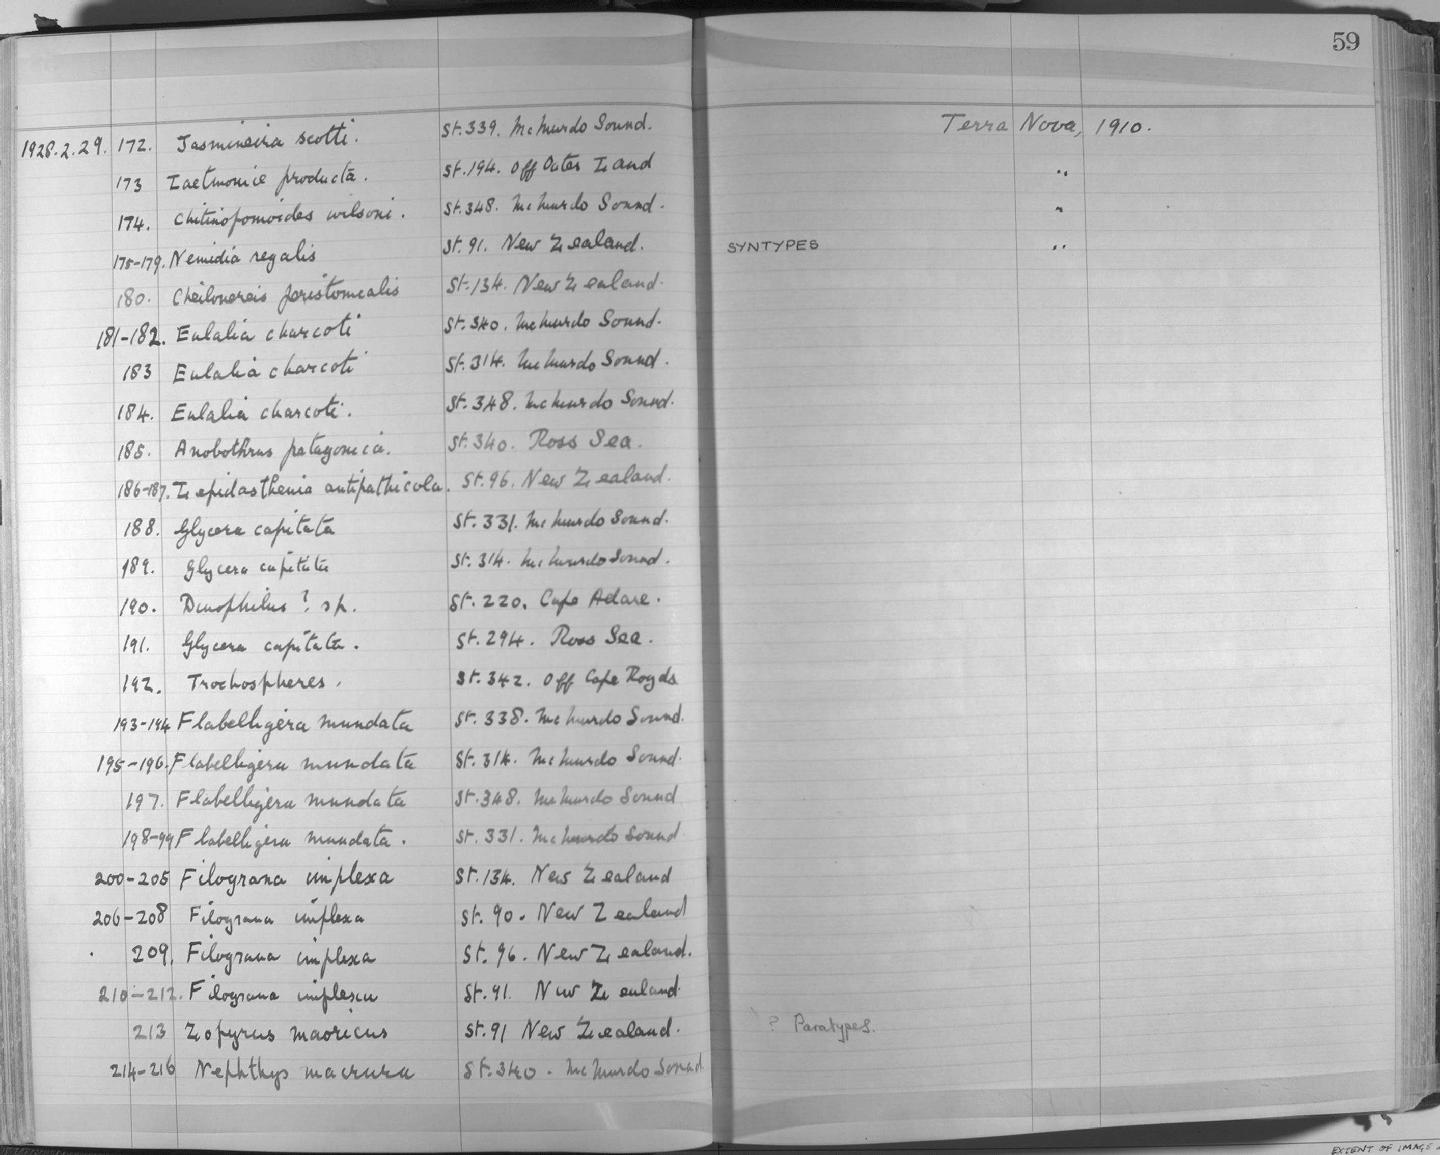 59
1928.2.29. 172. Jasmineira scotti. St. 339. McMurdo Sound. Terra Nova, 1910.
173 Laetmonice producta. St. 194. Off Oates Land "
174. Chitinopomoides wilsoni. St. 348. McMurdo Sound. "
175-179. Nemidia regalis St. 91. New Zealand. SYNTYPES "
180. Cheilonereis peristomealis St. 134. New Zealand.
181-182. Eulalia charcoti St. 340. McMurdo Sound.
183 Eulalia charcoti St. 314. McMurdo Sound.
184. Eulalia charcoti. St. 348. McMurdo Sound.
185. Anobothrus patagonica. St. 340. Ross Sea.
186-187. Lepidasthenia antipathicola. St. 96. New Zealand.
188. Glycera capitata St. 331. McMurdo Sound.
189. Glycera capitata St. 314. McMurdo Sound.
190. Dinophilus ? sp. St. 220. Cape Adare.
191. Glycera capitata. St. 294. Ross Sea.
192. Trochospheres. St. 342. Off Cape Royds
193-194 Flabelligera mundata St. 338. McMurdo Sound.
195-196. Flabelligera mundata St. 314. McMurdo Sound.
197. Flabelligera mundata St. 348. McMurdo Sound
198-99 Flabelligera mundata. St. 331. McMurdo Sound
200-205 Filograna implexa St. 134. New Zealand
206-208 Filograna implexa St. 90. New Zealand
209. Filograna implexa St. 96. New Zealand.
210-212. Filograna implexa St. 91. New Zealand
213 Zopyrus maoricus St. 91 New Zealand. ? Paratypes.
214-216 Nephthys macrura St. 340. McMurdo Sound
EXTENT OF IMAGE